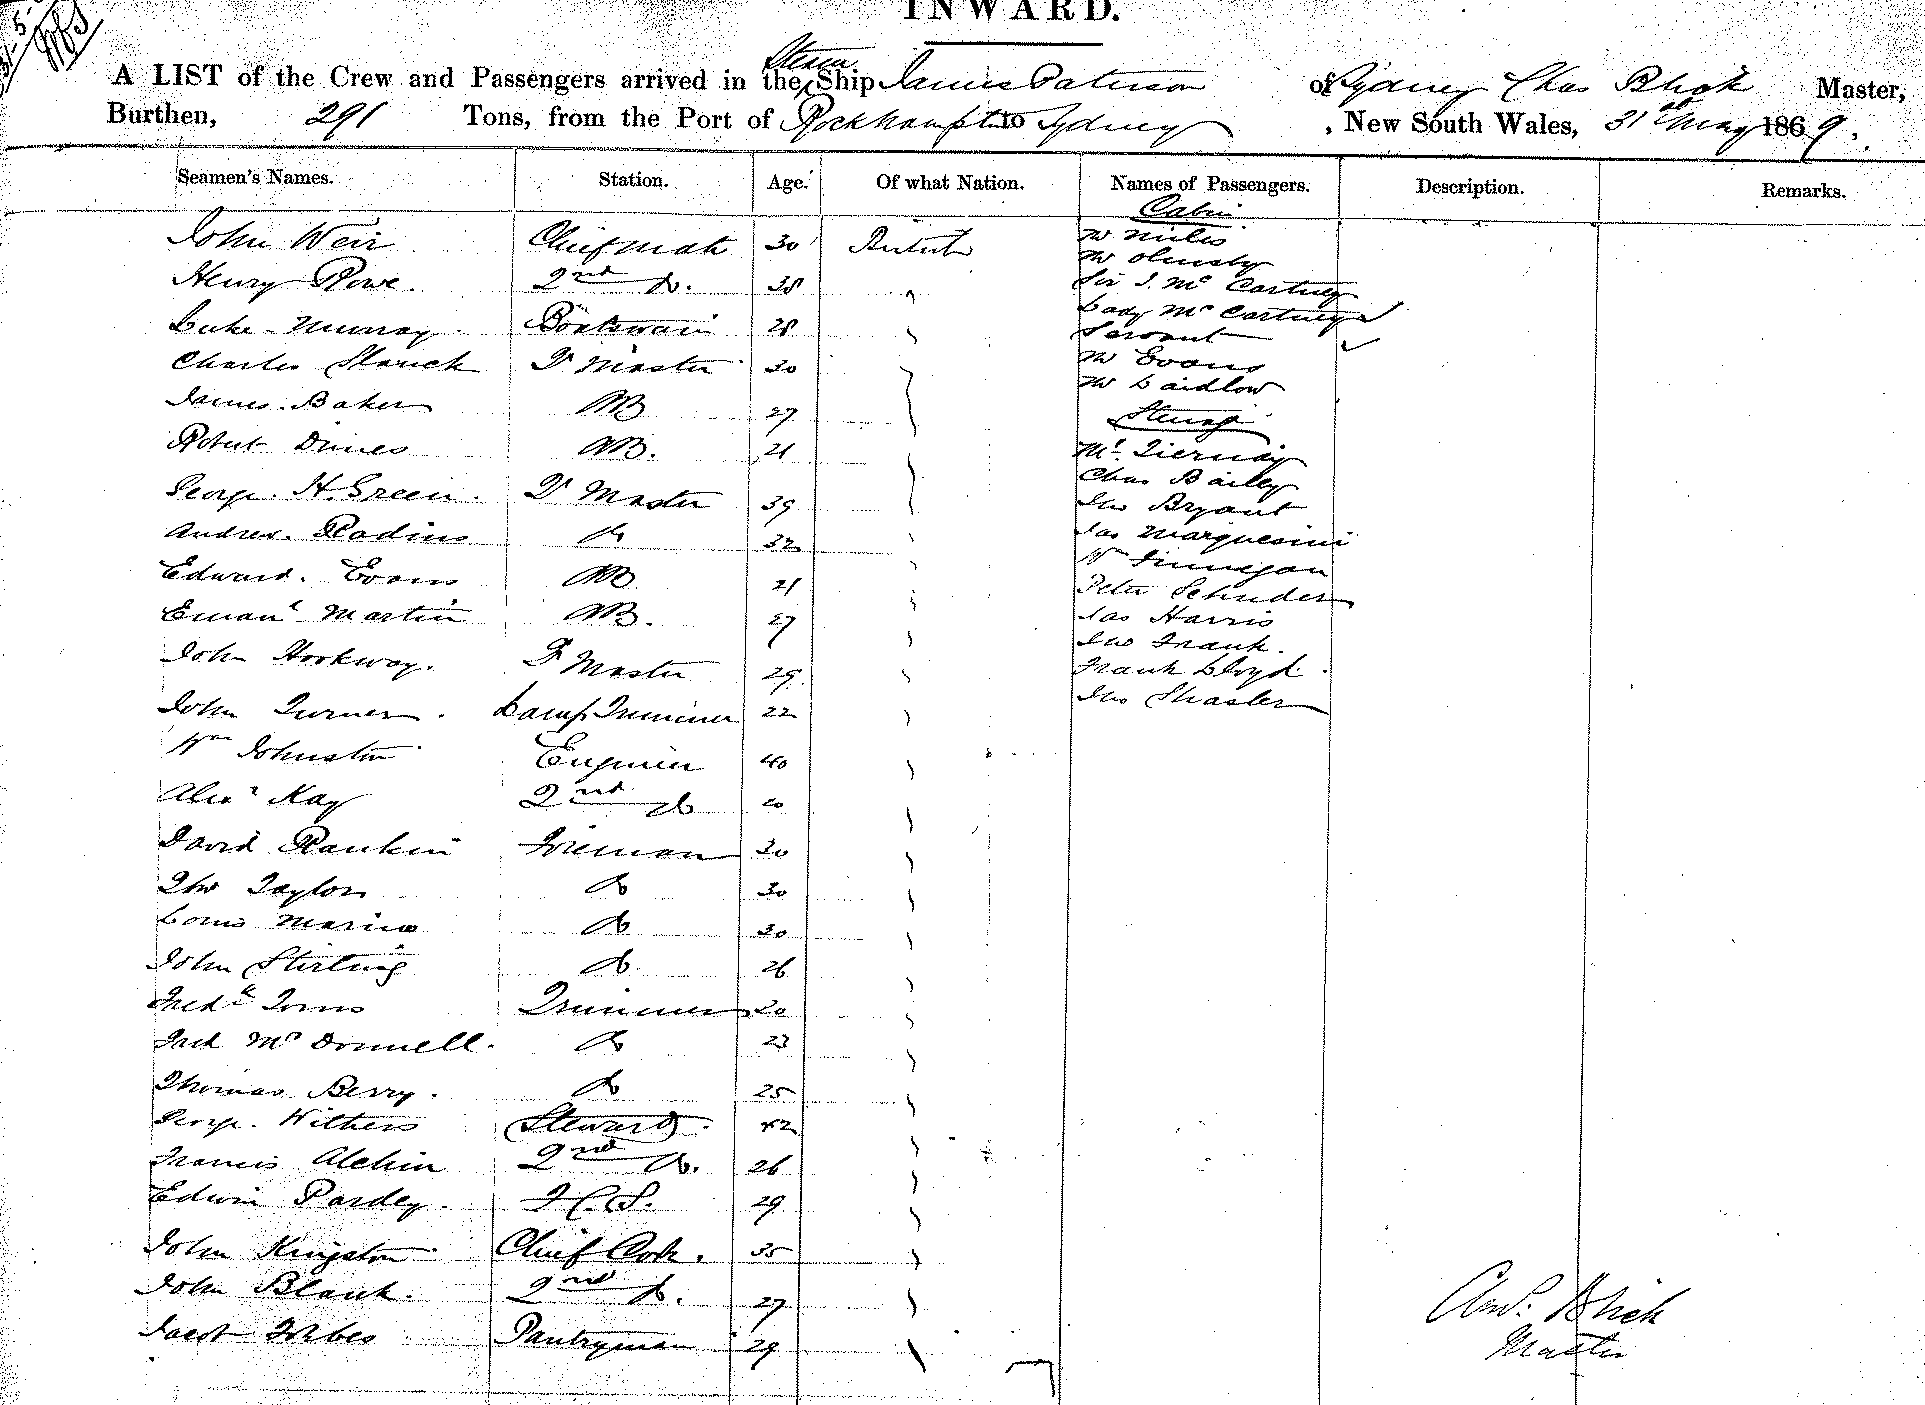 INWARD.
A LIST of the Crew and Passengers arrived in the Steam Ship James Paterson of Sydney Chas Master,
Burthen, 291 Tons, from the Port of Rockhampton to Sydney, New South Wales, 31st May 1869.
Seamen's Names. Station. Age. Of what Nation. Names of Passengers. Description. Remarks.
Cabin
John Weir Chief Mate 30 British
Mr Miles
Henry Rowe. 2nd Do. 38 "
Mr Olmsby
Sir J. McCartney
Luke Murray Boatswain 28 "
Lady McCartney
Servant
Charles Master 30
Mr Evans
Mr Laidlow
James Baker AB 27
Steerage
Robert Dimes AB. 21
Mr. Tiernay
George H. Green. Master 39
Chas Bailey
Jno Bryant
Andrew Rodins Do 32
Jas Marquesini
Edward. Evans AB 21
Wm Finnegan
Peter Schuder
Emanl Martin AB. 27
Jas Harris
Jno Frank.
John Hookway. Master 29
Frank Lloyd.
John Turner. Lamp Trimmer 22
Jno Shasler
Wm Johnston Engineer 40
Alexr Kay 2nd Do 20
David Rankin Fireman 30
Thos Taylor Do 30
Louis Marino Do 30
John Stirling Do. 26
Fredk Toms Trimmer 20
Fred McDonnell. Do 23
Thomas Berry. Do 25
George. Withers Steward. 42
Francis Alchin 2nd Do. 26
Edwin Pardey. F.C.S. 29
John Kingston Chief Cook. 35
John Blank. 2nd Do. 27
Jacob Forbes Pantryman 29
Master